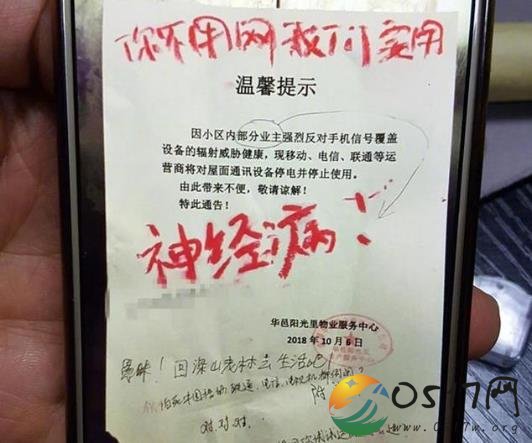 你不用网我们要用
温馨提示
因小区内部分业主强烈反对手机信号覆盖
设备的辐射威胁健康，现移动、电信、联通等运
营商将对屋面通讯设备停电并停止使用。
由此带来不便，敬请谅解！
特此通告！
神经病！
华邑阳光里物业服务中心
2018 年 10 月 6 日
愚昧！回深山老林去生活吧
对.对.对.
0517网
www.0517w.com